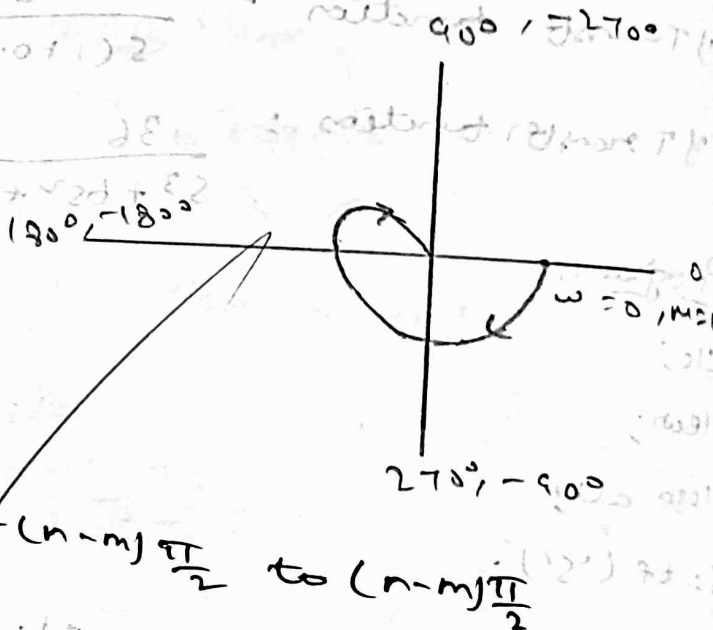 90°, -270°
180°, -180°
0
ω = 0, M=
270°, -90°
-(n-m) π/2 to (n-m) π/2